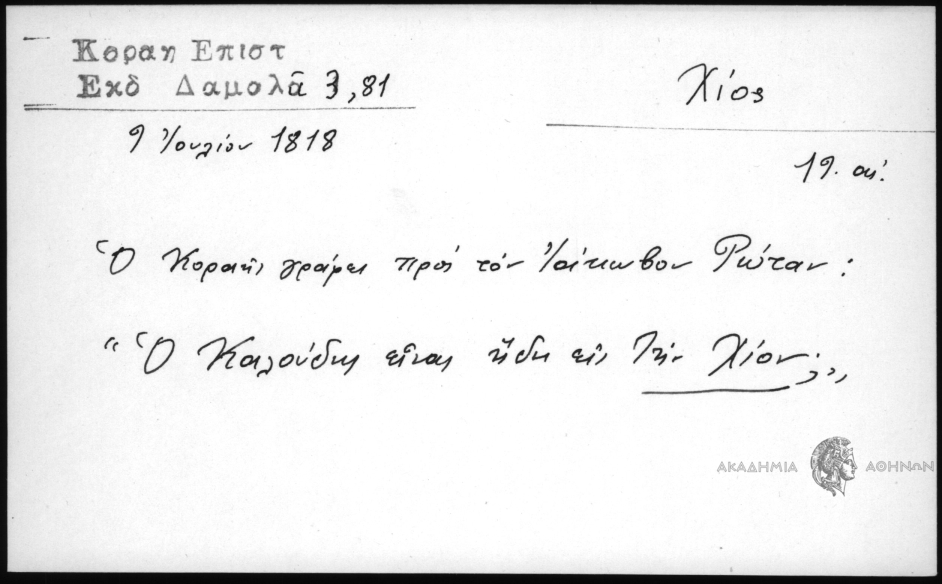 Κοραη Επιστ
Εκδ Δαμολᾶ 3,81
Χίος
9 Ἰουλίου 1818
19. αἰ.
Ὁ Κοραῆς γράφει πρὸς τὸν Ἰάκωβον Ῥώταν :
“ Ὁ Καλούδης εἶναι ἤδη εἰς τὴν Χίον; „
ΑΚΑΔΗΜΙΑ ΑΘΗΝΩΝ